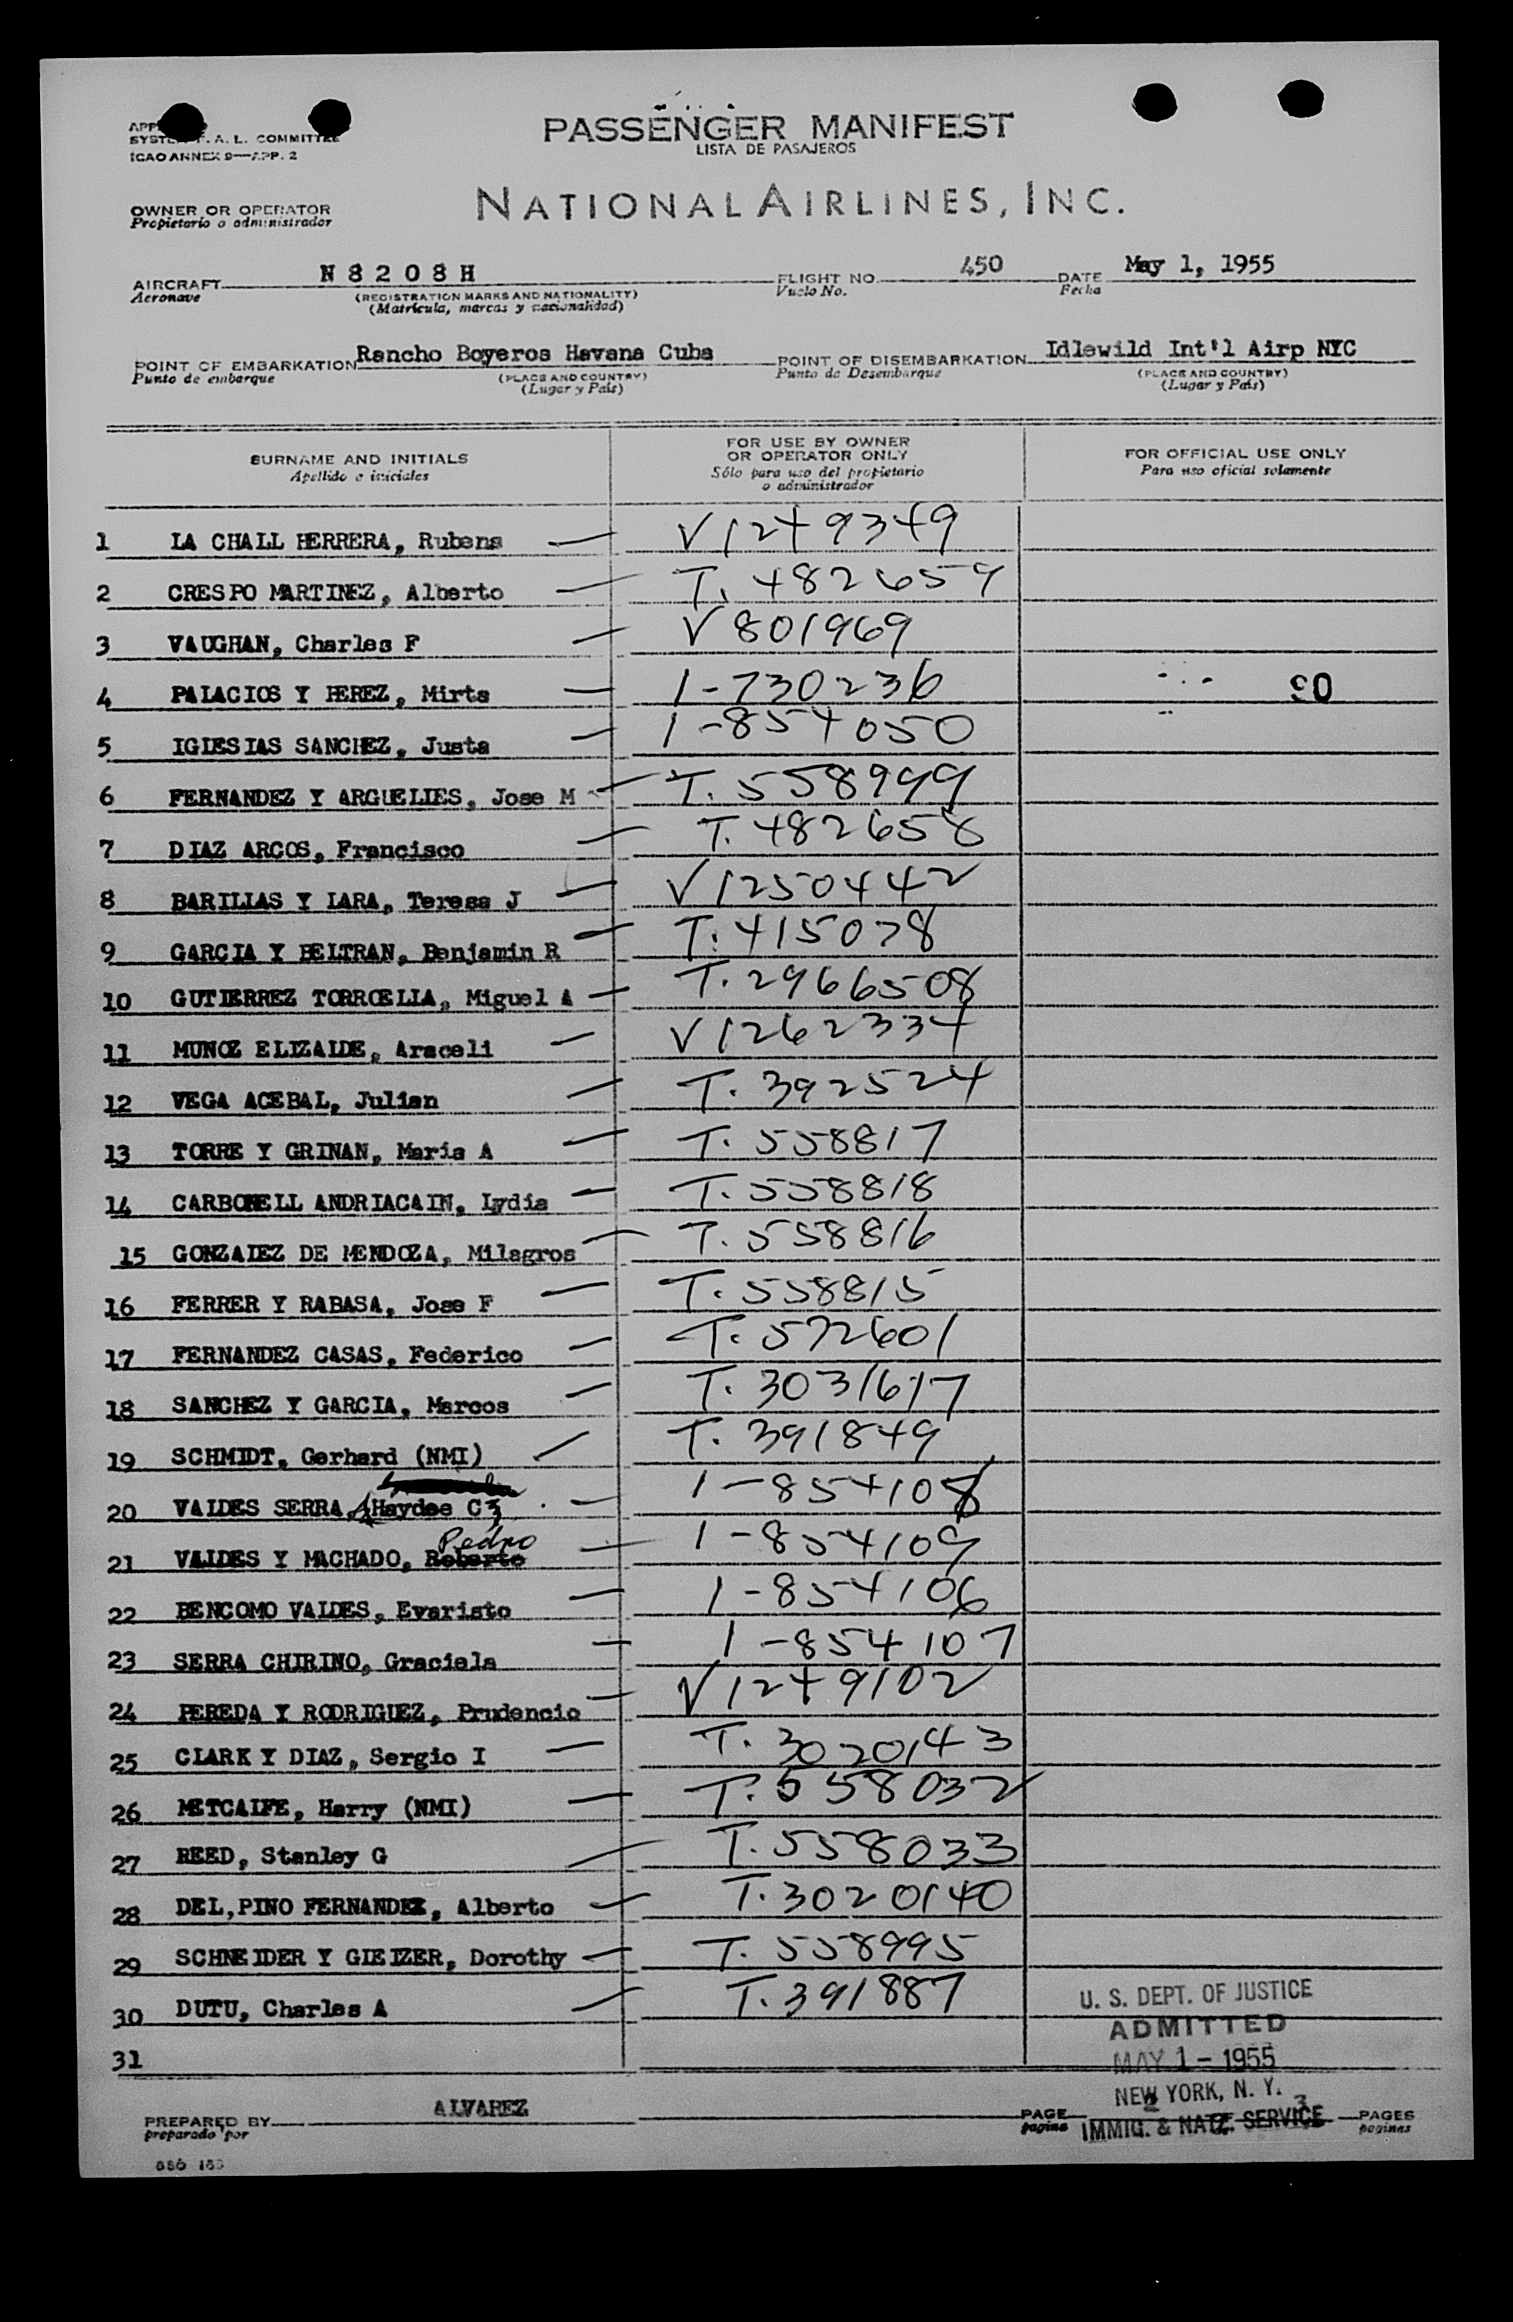 PASSENGER MANIFEST
LISTA DE PASAJEROS
A. L. COMMITTEE
ICAO ANNEX 9—APP. 2
NATIONAL AIRLINES, INC.
OWNER OR OPERATOR
Propietario o administrador
AIRCRAFT N 8 2 0 8 H FLIGHT NO. 450 DATE May 1, 1955
Aeronave (REGISTRATION MARKS AND NATIONALITY) Vuelo No. Fecha
(Matrícula, marcas y nacionalidad)
POINT OF EMBARKATION Rancho Boyeros Havana Cuba POINT OF DISEMBARKATION Idlewild Int'l Airp NYC
Punto de embarque (PLACE AND COUNTRY) Punto de Desembarque (PLACE AND COUNTRY)
(Lugar y País) (Lugar y País)
SURNAME AND INITIALS FOR USE BY OWNER OR OPERATOR ONLY FOR OFFICIAL USE ONLY
Apellido e iniciales Sólo para uso del propietario o administrador Para uso oficial solamente
1 LA CHALL HERRERA, Rubens — V1249349
2 CRESPO MARTINEZ, Alberto — T. 482659
3 VAUGHAN, Charles F — V801969
4 PALACIOS Y PEREZ, Mirta — 1-730236 90
5 IGLESIAS SANCHEZ, Justa — 1-854050
6 FERNANDEZ Y ARGUELLES, Jose M — T. 558999
7 DIAZ ARCOS, Francisco — T. 482658
8 BARILLAS Y LARA, Teresa J — V1250442
9 GARCIA Y BELTRAN, Benjamin R — T. 415078
10 GUTIERREZ TORROELLA, Miguel A — T. 2966508
11 MUNOZ ELIZALDE, Araceli — V1262334
12 VEGA ACEBAL, Julian — T. 392524
13 TORRE Y GRINAN, Maria A — T. 558817
14 CARBONELL ANDRIACAIN, Lydia — T. 558818
15 GONZALEZ DE MENDOZA, Milagros — T. 558816
16 FERRER Y RABASA, Jose F — T. 558815
17 FERNANDEZ CASAS, Federico — T. 572601
18 SANCHEZ Y GARCIA, Marcos — T. 3031617
19 SCHMIDT, Gerhard (NMI) — T. 391849
20 VALDES SERRA, Haydee C — 1-854108
Pedro
21 VALDES Y MACHADO, Roberto — 1-854109
22 BENCOMO VALDES, Evaristo — 1-854106
23 SERRA CHIRINO, Graciela — 1-854107
24 PEREDA Y RODRIGUEZ, Prudencio — V1249102
25 CLARK Y DIAZ, Sergio I — T. 3020143
26 METCALFE, Harry (NMI) — T. 558032
27 REED, Stanley G — T. 558033
28 DEL, PINO FERNANDEZ, Alberto — T. 3020140
29 SCHNEIDER Y GLEIZER, Dorothy — T. 558995
30 DUTU, Charles A — T. 391887
31
U. S. DEPT. OF JUSTICE
ADMITTED
MAY 1 - 1955
NEW YORK, N. Y.
IMMIG. & NATZ. SERVICE
PREPARED BY ALVAREZ PAGE 2 3 PAGES
preparado por pagina paginas